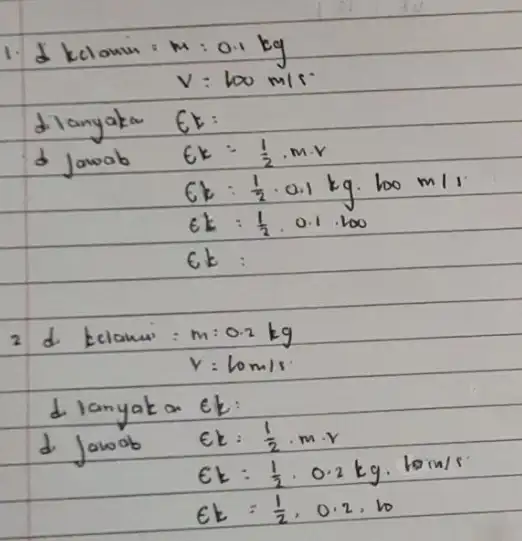 1. d ketahui : m : 0.1 kg
V : 100 m/s.
ditanyakan Ek :
d Jawab Ek = 1/2 . m . v
Ek : 1/2 . 0.1 kg . 100 m/s
Ek : 1/2 . 0.1 . 100
Ek :
2 d. ketahui : m : 0.2 kg
V : 10 m/s.
d tanyakan Ek :
d Jawab Ek : 1/2 . m . v
Ek : 1/2 . 0.2 kg . 10 m/s.
Ek = 1/2 . 0.2 . 10